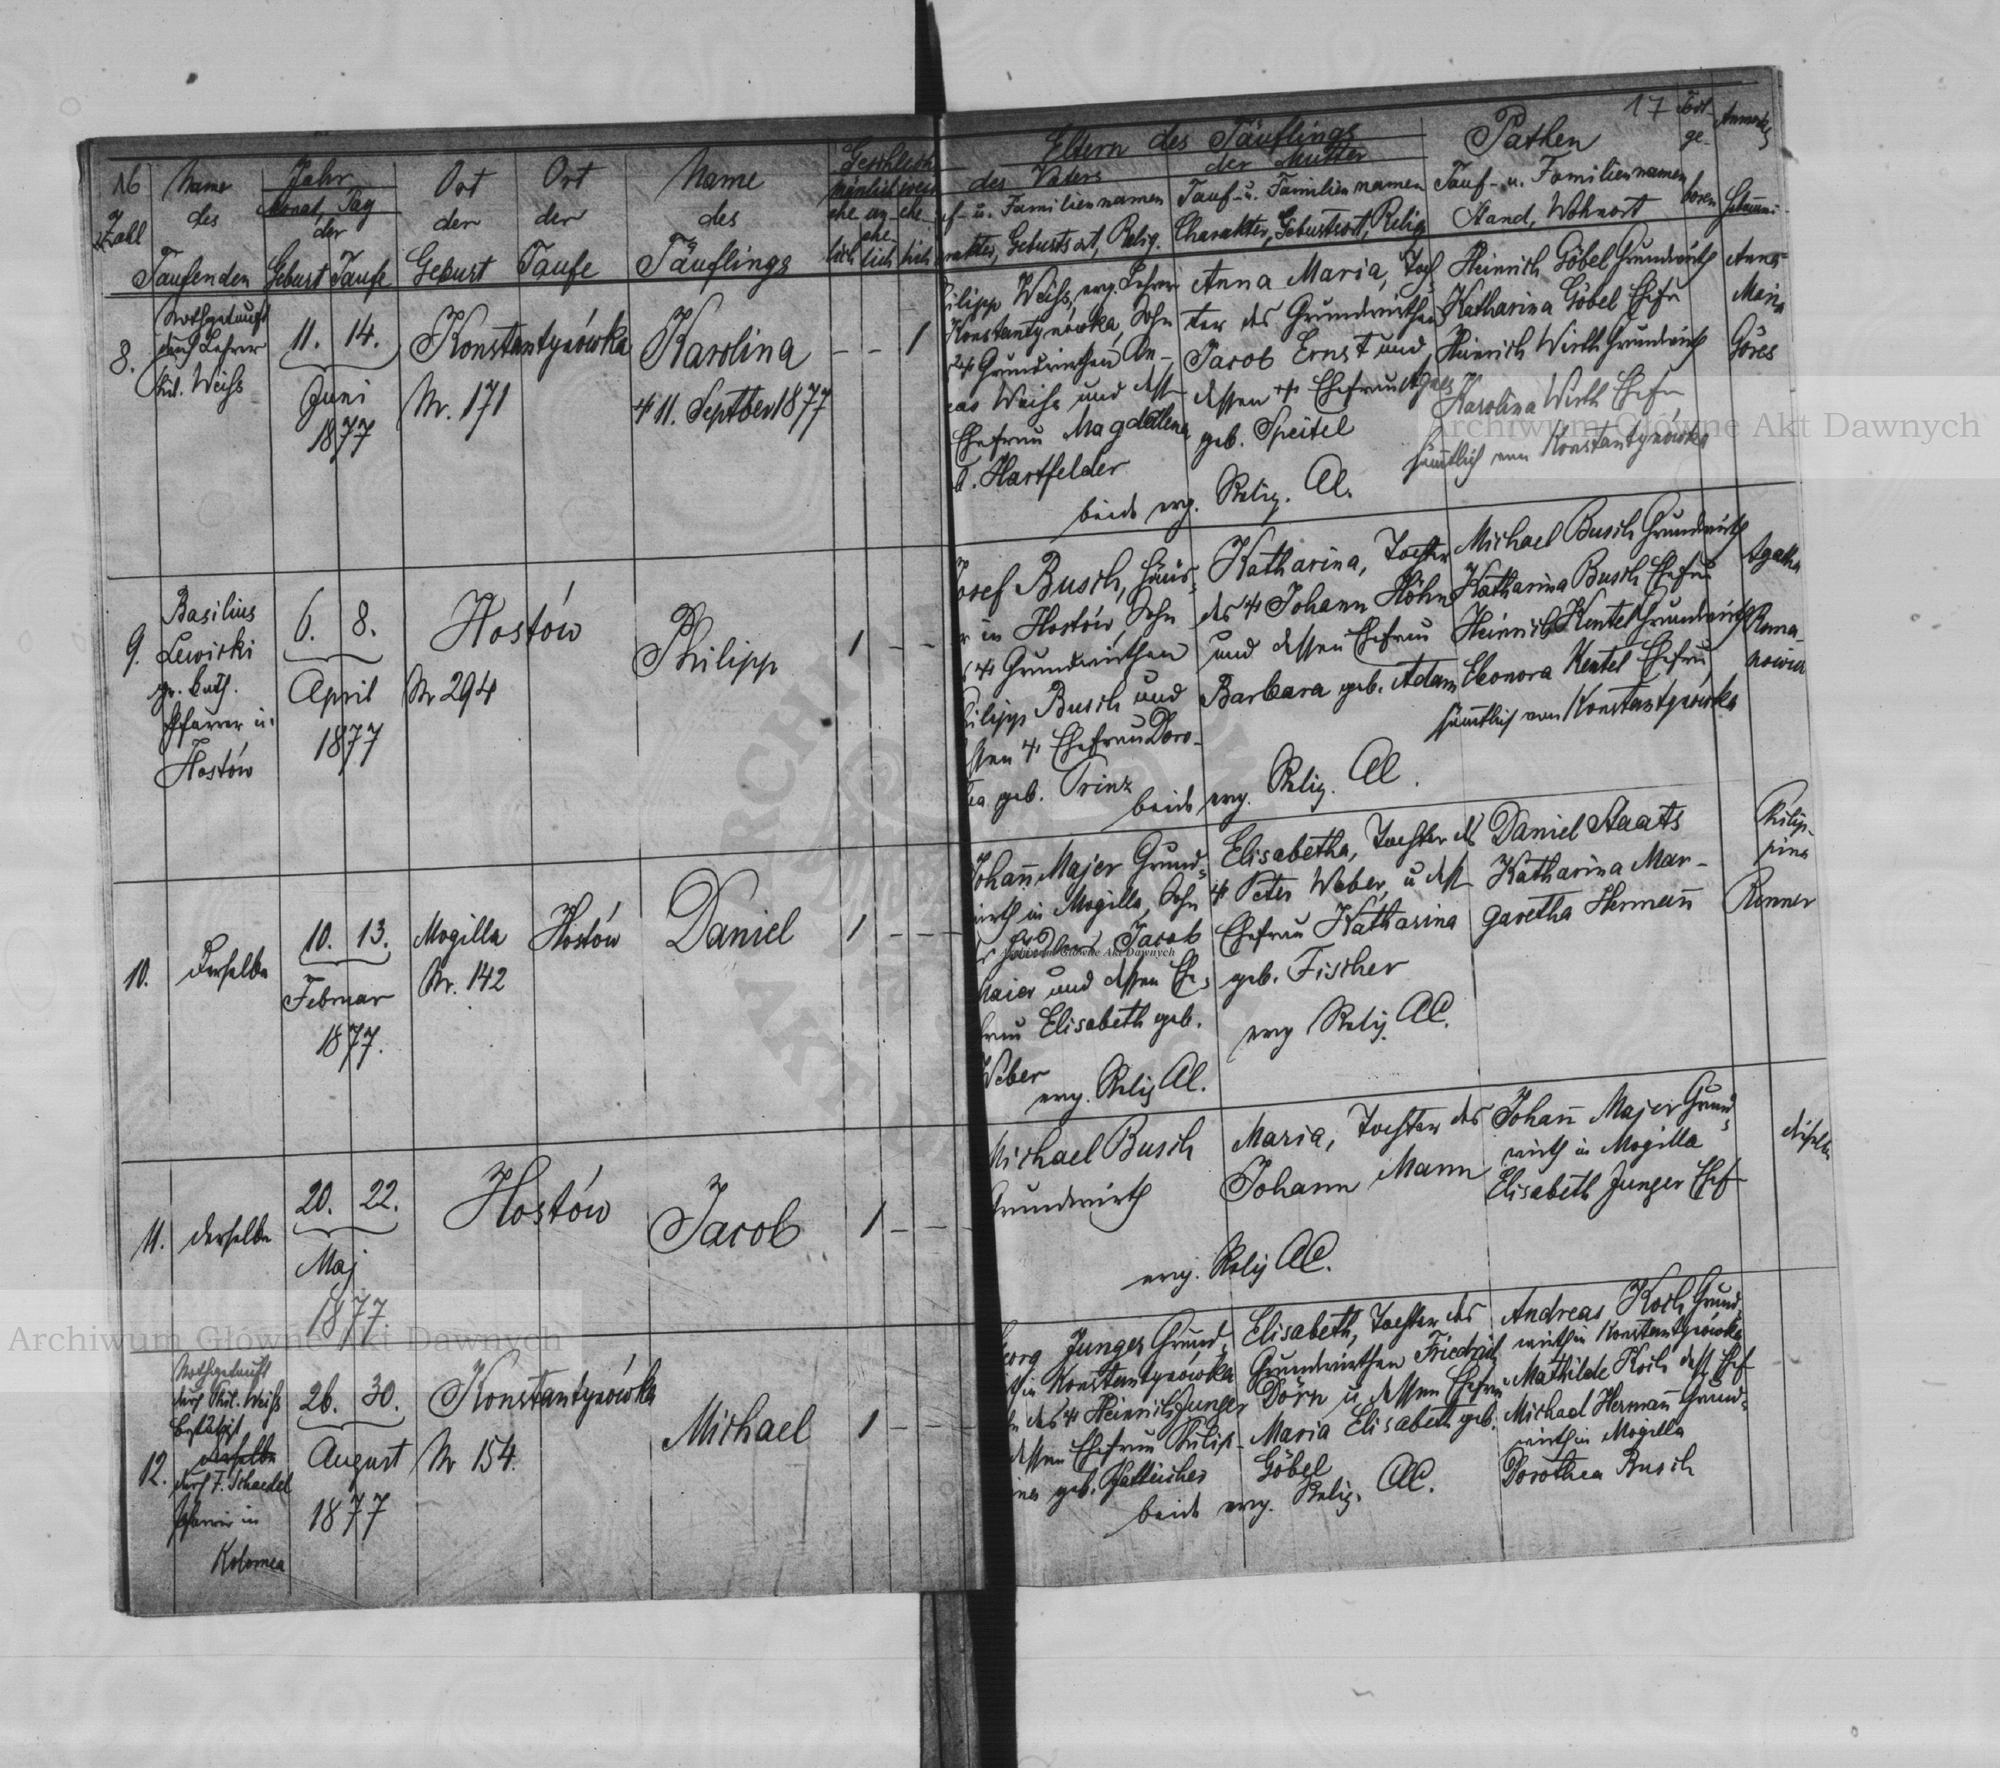 17
No Zahl
Name des Taufenden
Jahr
Monat, Tag
der
Geburt Taufe
Ort der Geburt
Ort der Taufe
Name des Täuflings
Geschlecht
männlich
ehe- un- ehe-
ehe-
lich lich lich
Eltern des Täuflings
des Vaters
der Mutter
u. Familiennamen
Geburtsort, Relig.
Tauf- u. Familiennamen
Charakter, Geburtsort, Relig
Pathen
Tauf- u. Familiennamen
Stand, Wohnort
Todt-
ge-
boren
8.
Nothgetauft
durch Lehrer
Phil. Weihs
11. 14.
Juni
1877
Konstantynówka
Nr. 171
Karolina
11. Septber 1877
– – 1
Weihs, evg. Lehrer
Konstantynówka, Sohn
Grundwirthen An-
Weihs und dess.
Ehefrau Magdallena
Hartfelder
Anna Maria, Toch-
ter des Grundwirthen
Jacob Ernst und
dessen Ehefrau Agnes
geb. Speitel
beide evg. Relig. AC.
Heinrich Göbel Grundwirth
Katharina Göbel Ehefr
Heinrich Wirth Grundwirth
Karolina Wirth Ehefr
sämtlich von Konstantynówka
Anna
Maria
Göres
9.
Basilius
Lewicki
gr. cath.
Pfarrer in
Hostów
6. 8.
April
1877
Hostów
Nr 294
Philipp
1 – –
Josef Busch, Häus-
in Hostów, Sohn
Grundwirthen
Philipp Busch und
Ehefrau Doro-
geb. Prinz
Katharina, Tochter
des Johann Höhn
und dessen Ehefrau
Barbara geb. Adam
beide evg. Relig. AC.
Michael Busch Grundwirth
Katharina Busch Ehefrau
Heinrich Kentel Grundwirth
Eleonora Kentel Ehefrau
sämtlich von Konstantynówka
Agatha
Roma-
nowicz
10.
derselbe
10. 13.
Februar
1877.
Mogilla
Nr. 142
Hostów
Daniel
1 – – –
Johañ Majer Grund-
wirth in Mogilla, Sohn
Jacob
Maier und dessen Ehe-
frau Elisabeth geb.
Weber
evg. Relig AC.
Elisabetha, Tochter des
Peter Weber, u dess
Ehefrau Katharina
geb. Fischer
evg Relig. AC.
Daniel Staats
Katharina Mar-
garetha Hermañ
Philip-
pina
Renner
11.
derselbe
20. 22.
Maj
1877.
Hostów
Jacob
1 – – –
Michael Busch
Grundwirth
Maria, Tochter des
Johann Mann
evg. Relig AC.
Johañ Majer Grund-
wirth in Mogilla
Elisabeth Junger Ehef
12.
Nothgetauft
durch Phil. Weihs
Bestätigt
derselbe
durch F. Schaedel
Pfarrer in
Kolomea
26. 30.
August
1877
Konstantynówka
Nr 154.
Michael
1 –
Georg Junger Grund-
in Konstantynówka
des Heinrich Junger
dessen Ehefrau Philip-
geb.
Elisabeth, Tochter des
Grundwirthen Friedrich
Dörn u. dessen Ehefrau
Maria Elisabeth geb.
Göbel
beide evg. Relig. AC.
Andreas Koch Grund-
wirth in Konstantynówka
Mathilde Koch dess Ehef
Michael Hermañ Grund-
wirth in Mogilla
Dorothea Busch
Archiwum Główne Akt Dawnych
Archiwum Główne Akt Dawnych
Archiwum Główne Akt Dawnych